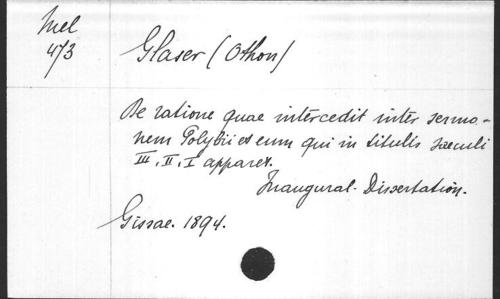 Mel
473
Glaser (Othon)
De ratione quae intercedit inter sermo-
nem Polybii et eum qui in titulis saeculi
III, II, I apparet.
Inaugural-Dissertation.
Gissae. 1894.